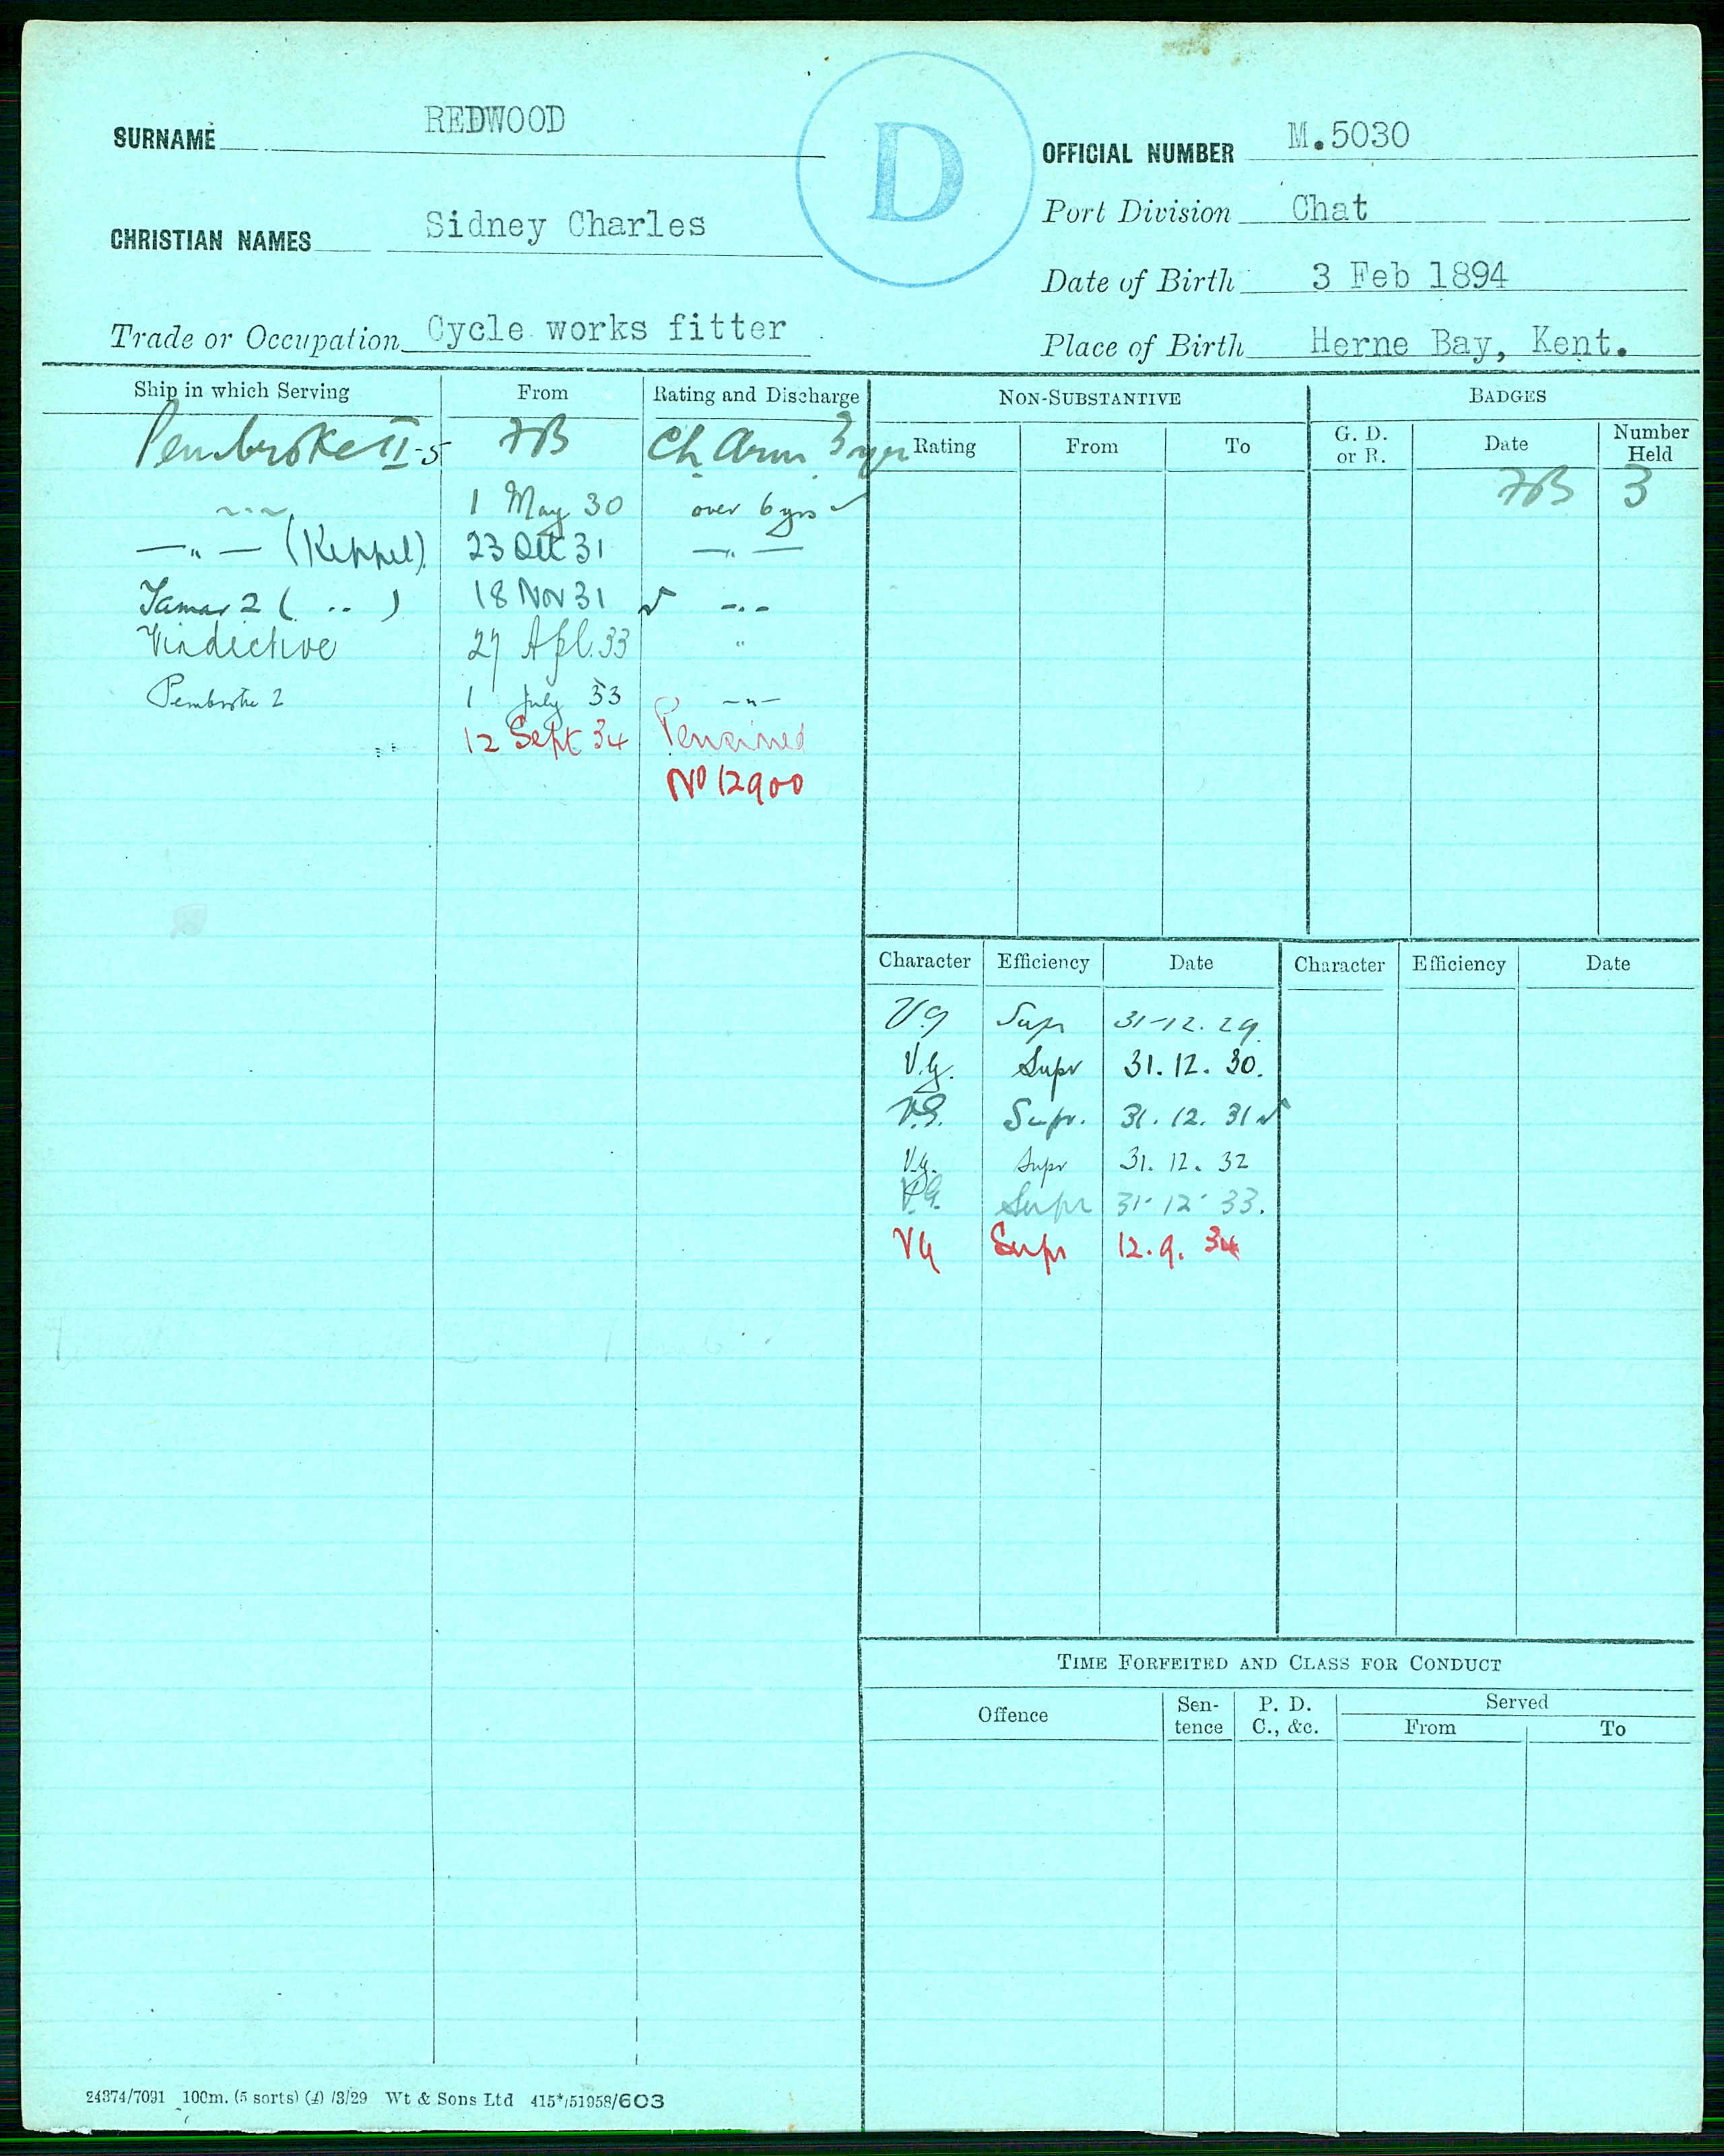 SURNAME REDWOOD
D
OFFICIAL NUMBER M.5030
Port Division Chat
CHRISTIAN NAMES Sidney Charles
Date of Birth 3 Feb 1894
Trade or Occupation Cycle works fitter
Place of Birth Herne Bay, Kent.
Ship in which Serving From Rating and Discharge
Pembroke II-5 Ch Arm 3 yrs
-..- 1 May 30 over 6 yrs ✓
—"— (Keppel) 23 Oct 31 —"—
Tamar 2 ( .. ) 18 Nov 31 ✓ -..-
Vindictive 27 Apl. 33 "
Pembroke 2 1 July 33 -"-
12 Sept 34 Pensioned
No 12900
NON-SUBSTANTIVE
Rating From To
BADGES
G. D. or R. Date Number Held
3
Character Efficiency Date Character Efficiency Date
VG Supr 31-12.29
V.G. Supr 31.12.30.
V.G. Supr. 31.12.31 ✓
V.G. Supr 31.12.32
V.G. Supr 31-12-33.
VG Supr 12.9.34
TIME FORFEITED AND CLASS FOR CONDUCT
Offence Sen-tence P. D. C., &c. Served
From To
24374/7091 100m. (5 sorts) (4) /3/29 Wt & Sons Ltd 415*/51958/603